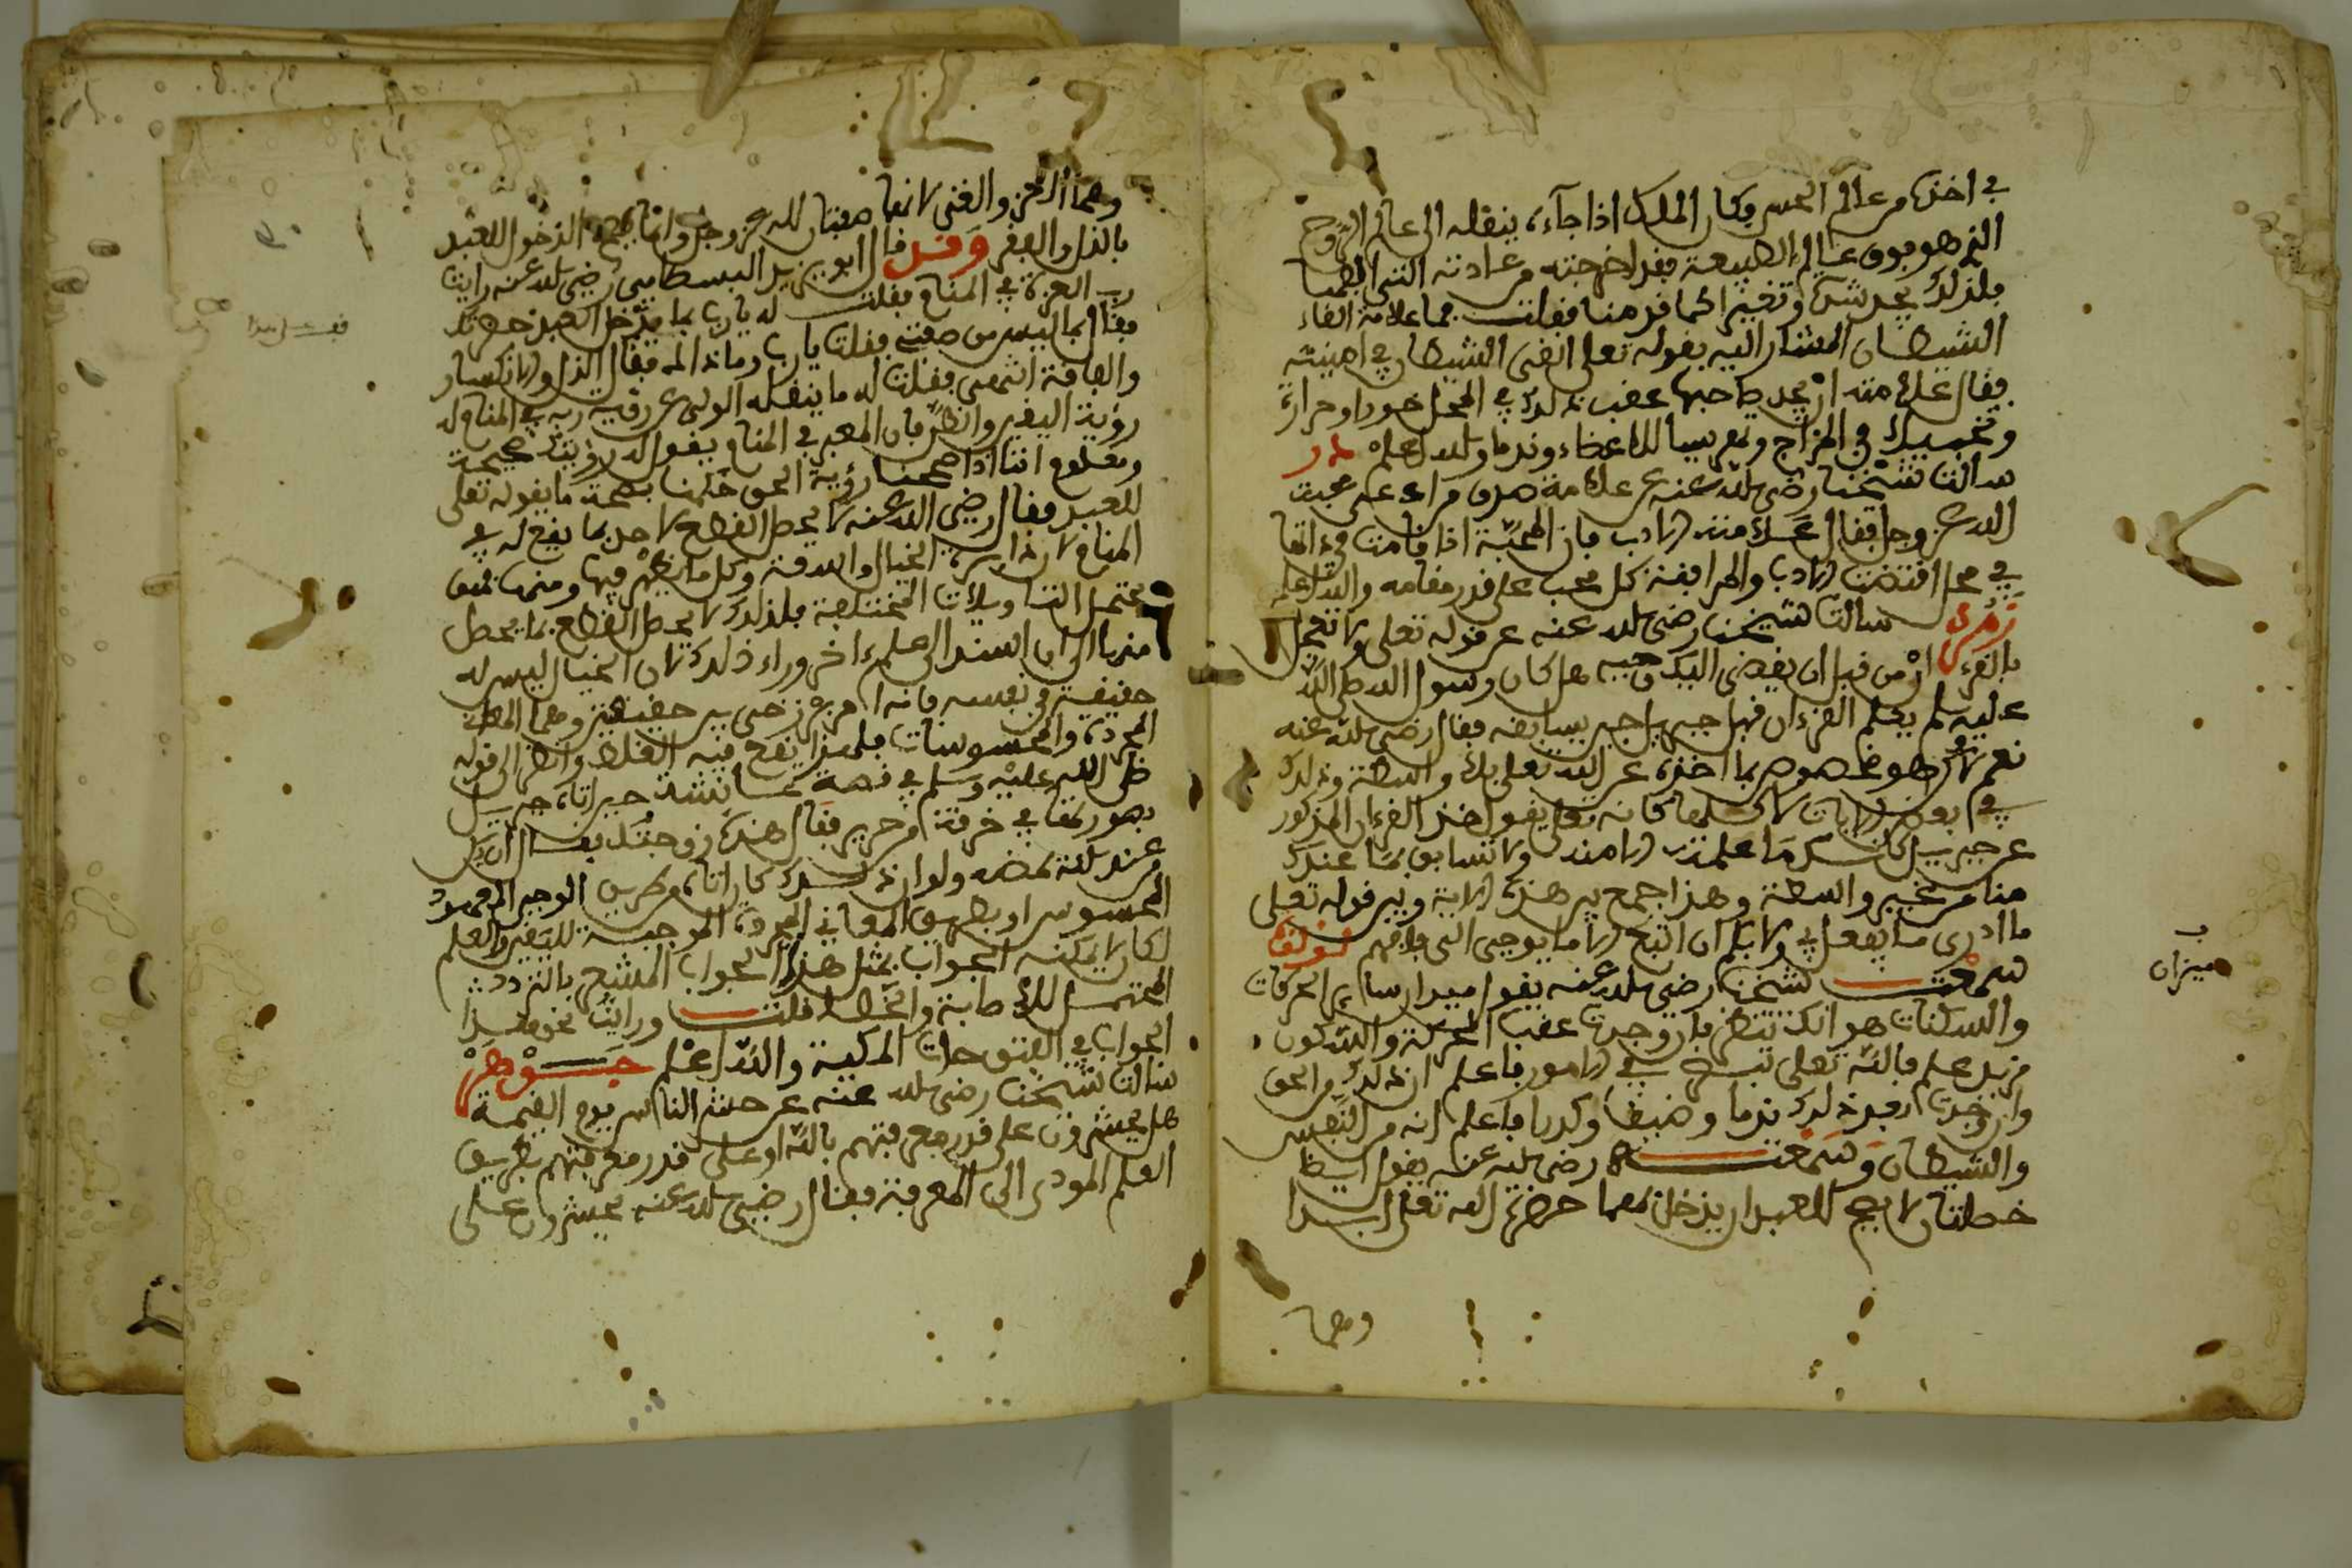 في اخذه من عالم الحس وكان الملك اذا جاءه ينقله الى عالم الروح
الذي هو فوق عالم الطبيعة فقد اخرجته من عادته التي الفها
فلذلك يجد شدة وتغيرا كما قدمنا فقلت فما علامة القاء
الشيطان المشار اليه بقوله تعلى القى الشيطان في امنيته
فقال علامته ان يجد صاحبها عقب ذلك في المحل خورا وحرارة
وتخبيلا في المزاج وتعريسا للاعضاء وندما والله اعلم در
سالت شيخنا رضي الله عنه عن علامة صدق من ادعى محبت
الله عز وجل فقال علامته الادب فان المحبة اذا قامت
في محل اقتضت الادب والمرافقة كل محب على قدر مقامه والله اعلم
زمرد سالت شيخنا رضي الله عنه عن قوله تعلى ولا تعجل
بالقرءان من قبل ان يقضى اليك وحيه هل كان رسول الله صلى الله
عليه وسلم يعلم القرءان قبل جبريل حين يسابقه فقال رضي الله عنه
نعم لاكن هو مخصوص بما اخذه عن الله تعلى بلا واسطة وذلك
في بعض الايات لا كلها فكانه تعلى يقول خذ القرءان المذكور
عن جبريل كانك ما علمته الا منه ولا تسابق بما عندك
منا من غير واسطة وهذا جمع بين هذه الاية وبين قوله تعلى
ما ادري ما يفعل بي ولا بكم ان اتبع الا ما يوحى الي فافهم لؤلؤة
سمعت شيخنا رضي الله عنه يقول ميزان ساير الحركات
والسكنات هو انك تنظر فان وجدت عقب الحركة والسكون
مزيد علم بالله تعلى في الامور فاعلم ان ذلك من الحق
وان وجدت بعد ذلك ندما وضيقا وكدرا فاعلم انه من النفس
والشيطان وسمعته رضي الله عنه يقول ايضا
خصلتان لا يصح للعبد ان يدخل بهما حضرة الله تعلى ابدا
وهما
ميزان
وهما العز والغنى لانهما صفتان لله عز وجل وانما يصح الدخول للعبد
بالذل والفقر وقد قال ابو يزيد البسطامي رضي الله عنه رايت
رب العزة في المنام فقلت له يارب بما يدخل العبد حضرتك
فقال بما ليس من صفتي فقلت يارب وما ذا الم فقال الذل والانكسار
والفاقة انتهى فقلت له ما ينقله الولي عن رؤيته ربه في المنام له
رؤية اليقين والظن فان المعبر في المنام يقول له رؤيتك صحيحة
ومعلوم اننا اذا صححنا رؤية الحق حكمنا بصحة ما يقوله تعلى
للعبد فقال رضي الله عنه لا يحصل القطع لاحد بما يقع له في
المنام لان دايرة الخيال واسعة وكل ما يظهر فيها ومنها فهو
يحتمل التاويلات المختلفة فلذلك لا يحصل القطع بما يحصل
منها الا ان استند الى علم ءاخر وراء ذلك لان الخيال ليس له
حقيقة في نفسه فانه امر برزخي بين حقيقتين وهما المعاني
المجردة والمحسوسات فلهذا يقع فيه الغلط وانظر الى قوله
صلى الله عليه وسلم في قصة عايشة حين اتاه جبريل
بصورتها في خرقة من حرير فقال هذه زوجتك فقال ان يكن
من عند الله يمضه ولو ان ذلك كان اتاه من طريق الوحي المعهود
المحسوس او بطريق المعاني المجردة الموجبة لليقين والعلم
لكان لا يمكنه الجواب بمثل هذا الجواب المشعر بالتردد
المحتمل للاصابة والخطا قلت ورايت نحو هذا
الجواب في الفتوحات المكية والله اعلم جوهر
سالت شيخنا رضي الله عنه عن حشر الناس يوم القيمة
هل يحشرون على قدر معرفتهم بالله او على قدر معرفتهم بطريق
العلم المودى الى المعرفة فقال رضي الله عنه يحشرون على